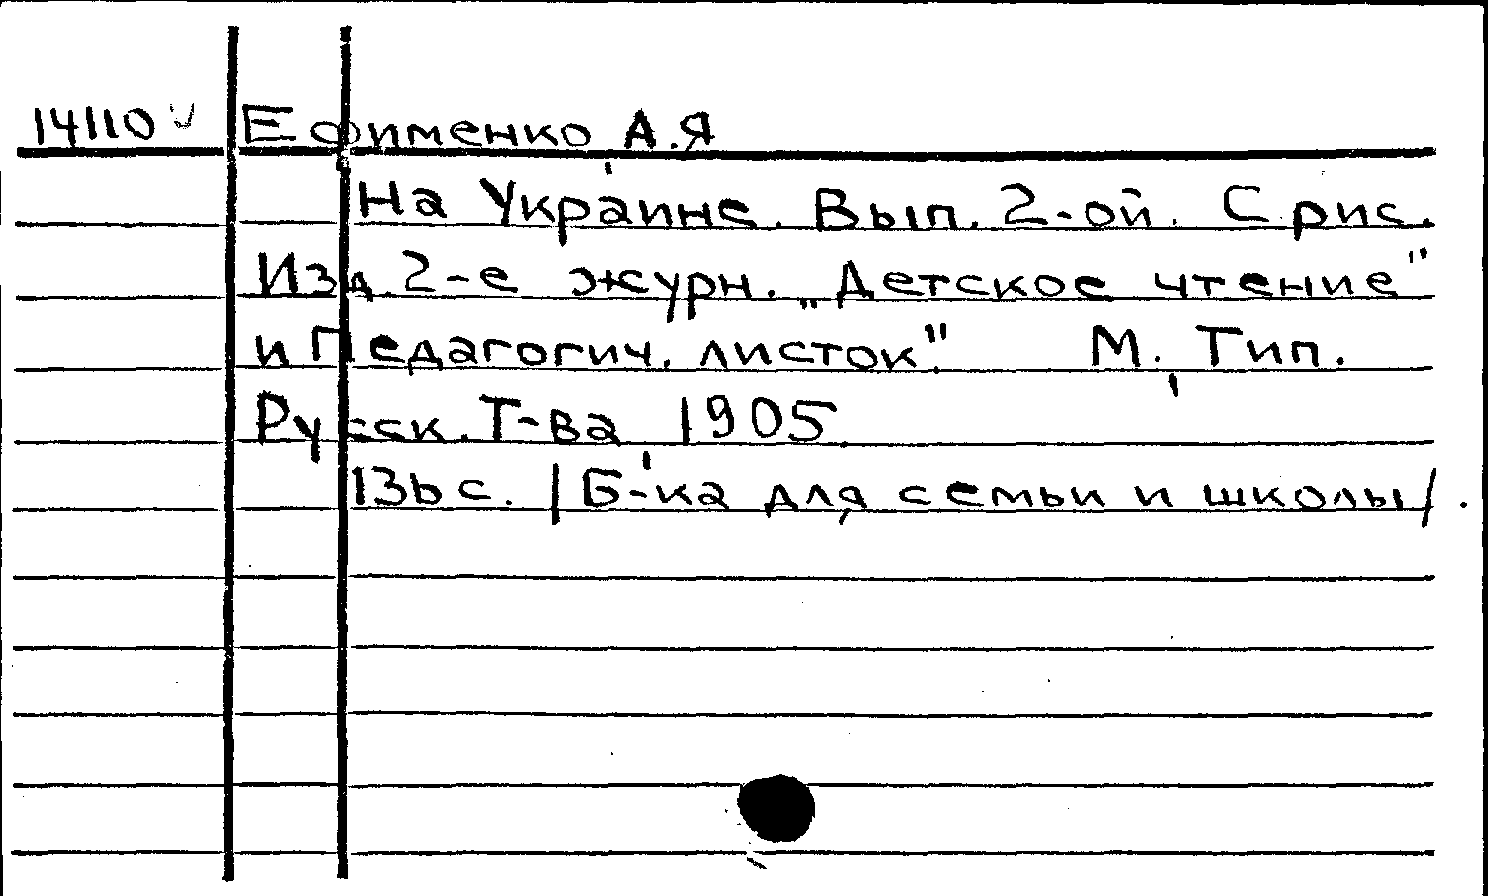 14110 Ефименко, А.Я
На Украине. Вып. 2-ой. С рис.
Изд. 2-е журн. „Детское чтение"
и Педагогич. листок". М., Тип.
Русск. Т-ва, 1905
136 с. /Б-ка для семьи и школы/.